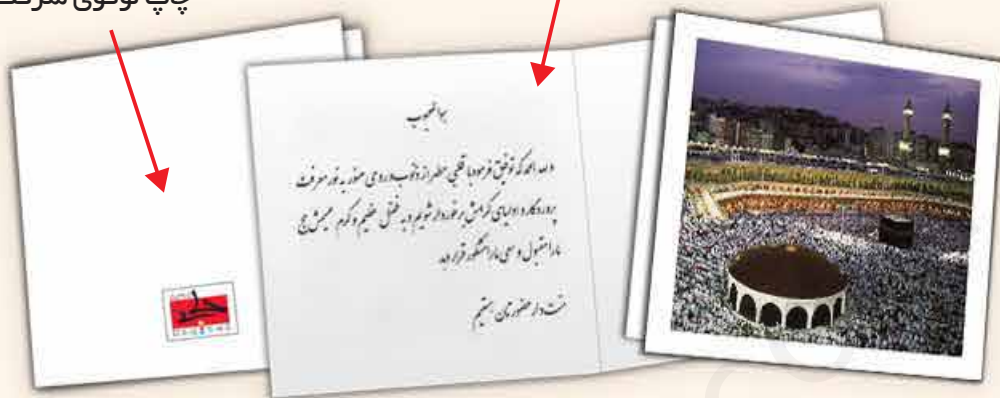 چاپ لوگوی شرکت
هوالمحبوب
و لله الحمد که توفیق فرمود با قلبی مطهر از ذنوب و روحی منور به نور معرفت
پروردگار و اولیای گرامش برخوردار شویم و به فضل عظیم و کرم عمیمش حج
ما را مقبول و سعی ما را مشکور قرار دهد
منت دار حضورتان هستیم